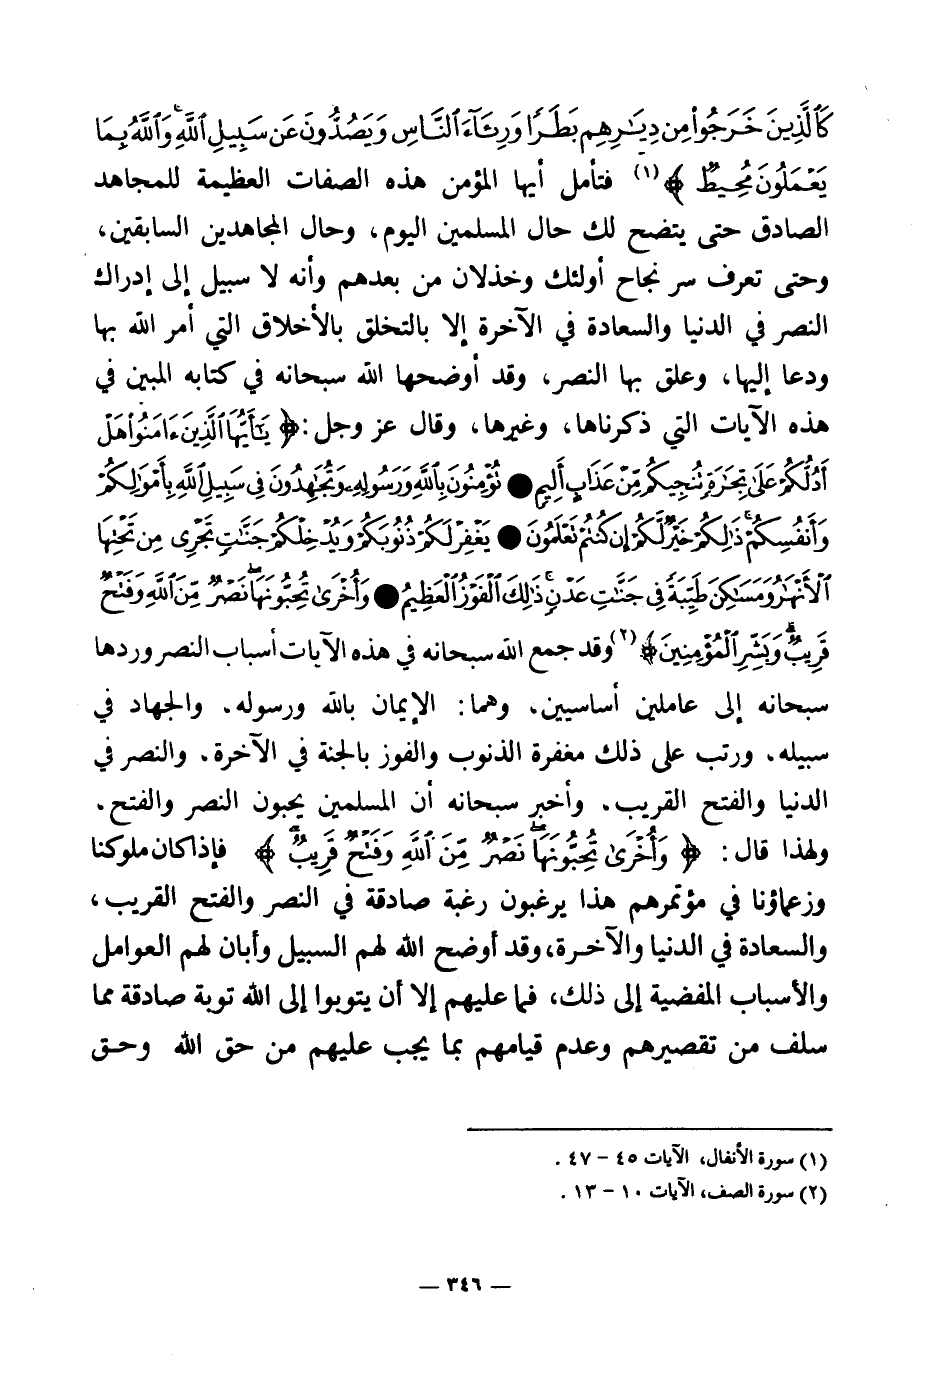 كَٱلَّذِينَ خَرَجُوا۟ مِن دِيَٰرِهِم بَطَرًا وَرِئَآءَ ٱلنَّاسِ وَيَصُدُّونَ عَن سَبِيلِ ٱللَّهِ ۚ وَٱللَّهُ بِمَا
يَعْمَلُونَ مُحِيطٌ ﴾ (١) فتأمل أيها المؤمن هذه الصفات العظيمة للمجاهد
الصادق حتى يتضح لك حال المسلمين اليوم، وحال المجاهدين السابقين،
وحتى تعرف سر نجاح أولئك وخذلان من بعدهم وأنه لا سبيل إلى إدراك
النصر في الدنيا والسعادة في الآخرة إلا بالتخلق بالأخلاق التي أمر الله بها
ودعا إليها، وعلق بها النصر، وقد أوضحها الله سبحانه في كتابه المبين في
هذه الآيات التي ذكرناها، وغيرها، وقال عز وجل : ﴿ يَٰٓأَيُّهَا ٱلَّذِينَ ءَامَنُوا۟ هَلْ
أَدُلُّكُمْ عَلَىٰ تِجَٰرَةٍ تُنجِيكُم مِّنْ عَذَابٍ أَلِيمٍ ● تُؤْمِنُونَ بِٱللَّهِ وَرَسُولِهِۦ وَتُجَٰهِدُونَ فِى سَبِيلِ ٱللَّهِ بِأَمْوَٰلِكُمْ
وَأَنفُسِكُمْ ۚ ذَٰلِكُمْ خَيْرٌ لَّكُمْ إِن كُنتُمْ تَعْلَمُونَ ● يَغْفِرْ لَكُمْ ذُنُوبَكُمْ وَيُدْخِلْكُمْ جَنَّٰتٍ تَجْرِى مِن تَحْتِهَا
ٱلْأَنْهَٰرُ وَمَسَٰكِنَ طَيِّبَةً فِى جَنَّٰتِ عَدْنٍ ۚ ذَٰلِكَ ٱلْفَوْزُ ٱلْعَظِيمُ ● وَأُخْرَىٰ تُحِبُّونَهَا ۖ نَصْرٌ مِّنَ ٱللَّهِ وَفَتْحٌ
قَرِيبٌ ۗ وَبَشِّرِ ٱلْمُؤْمِنِينَ ﴾ (٢) وقد جمع الله سبحانه في هذه الآيات أسباب النصر وردها
سبحانه إلى عاملين أساسيين. وهما: الإيمان بالله ورسوله. والجهاد في
سبيله. ورتب على ذلك مغفرة الذنوب والفوز بالجنة في الآخرة. والنصر في
الدنيا والفتح القريب. وأخبر سبحانه أن المسلمين يحبون النصر والفتح.
ولهذا قال: ﴿ وَأُخْرَىٰ تُحِبُّونَهَا ۖ نَصْرٌ مِّنَ ٱللَّهِ وَفَتْحٌ قَرِيبٌ ۗ ﴾ فإذا كان ملوكنا
وزعماؤنا في مؤتمرهم هذا يرغبون رغبة صادقة في النصر والفتح القريب،
والسعادة في الدنيا والآخرة، وقد أوضح الله لهم السبيل وأبان لهم العوامل
والأسباب المفضية إلى ذلك، فما عليهم إلا أن يتوبوا إلى الله توبة صادقة مما
سلف من تقصيرهم وعدم قيامهم بما يجب عليهم من حق الله وحق
(١) سورة الأنفال، الآيات ٤٥ – ٤٧ .
(٢) سورة الصف، الآيات ١٠ – ١٣ .
— ٣٤٦ —